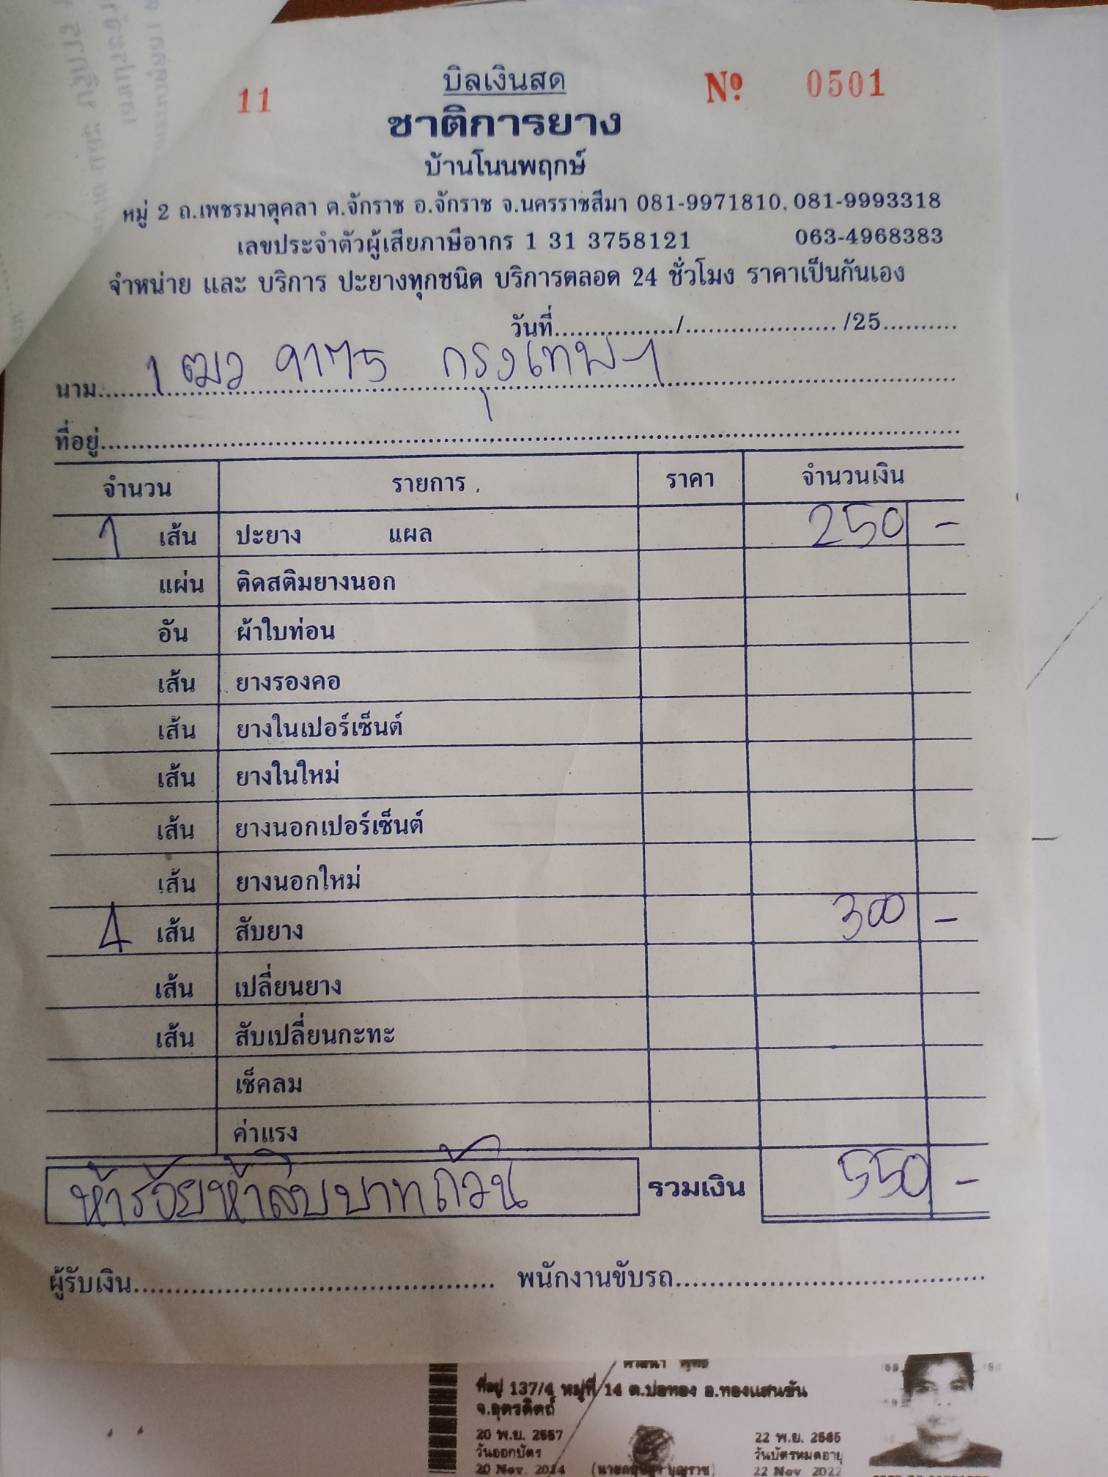 บิลเงินสด
11 Nº 0501
ชาติการยาง
บ้านโนนพฤกษ์
หมู่ 2 ถ.เพชรมาตุคลา ต.จักราช อ.จักราช จ.นครราชสีมา 081-9971810, 081-9993318
เลขประจำตัวผู้เสียภาษีอากร 1 31 3758121 063-4968383
จำหน่าย และ บริการ ปะยางทุกชนิด บริการตลอด 24 ชั่วโมง ราคาเป็นกันเอง
วันที่................/.................... /25..........
นาม 1ฒว 9175 กรุงเทพฯ
ที่อยู่
จำนวน รายการ ราคา จำนวนเงิน
1 เส้น ปะยาง แผล 250 -
แผ่น ติดสติมยางนอก
อัน ผ้าใบท่อน
เส้น ยางรองคอ
เส้น ยางในเปอร์เซ็นต์
เส้น ยางในใหม่
เส้น ยางนอกเปอร์เซ็นต์
เส้น ยางนอกใหม่
4 เส้น สับยาง 300 -
เส้น เปลี่ยนยาง
เส้น สับเปลี่ยนกะทะ
เช็คลม
ค่าแรง
ห้าร้อยห้าสิบบาทถ้วน รวมเงิน 550 -
ผู้รับเงิน........................................ พนักงานขับรถ........................................
ศาสนา พุทธ
ที่อยู่ 137/4 หมู่ที่ 14 ต.บ่อทอง อ.ทองแสนขัน
จ.อุตรดิตถ์
20 พ.ย. 2557 22 พ.ย. 2565
วันออกบัตร วันบัตรหมดอายุ
20 Nov. 2014 22 Nov 2022